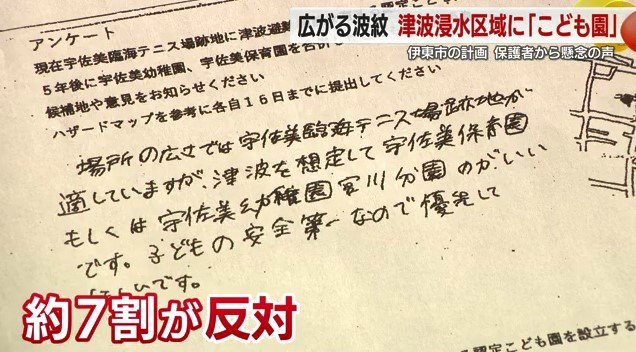 広がる波紋 津波浸水区域に「こども園」
伊東市の計画 保護者から懸念の声
アンケート
現在宇佐美臨海テニス場跡地に津波避
5年後に宇佐美幼稚園、宇佐美保育園を
候補地や意見をお知らせください
ハザードマップを参考に各自16日までに提出してください
場所の広さでは宇佐美臨海テニス場跡地が
適していますが、津波を想定して宇佐美保育園
もしくは宇佐美幼稚園宮川分園のがいい
です。子どもの安全第一なので優先して
です。
約7割が反対
認定こども園を設立する